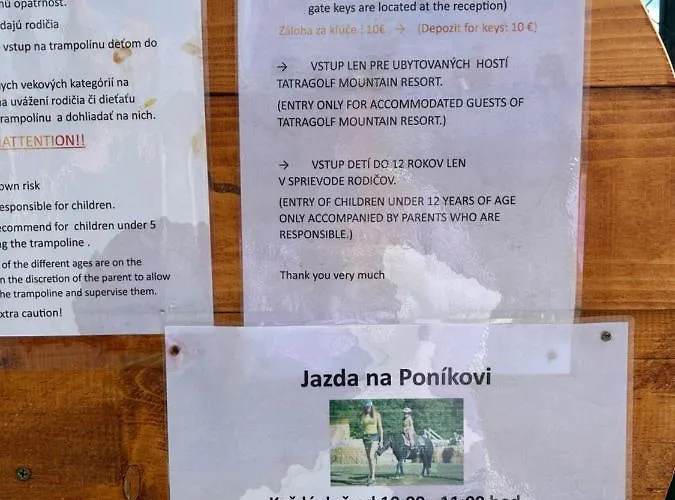 nú opatrnosť.
dajú rodičia
vstup na trampolínu deťom do
ych vekových kategórií na
a uvážení rodičia či dieťatu
rampolínu a dohliadať na nich.
ATTENTION!!
own risk
esponsible for children.
ecommend for children under 5
g the trampoline .
of the different ages are on the
n the discretion of the parent to allow
he trampoline and supervise them.
xtra caution!
gate keys are located at the reception)
Záloha za kľúče : 10€ → (Depozit for keys: 10 €)
→ VSTUP LEN PRE UBYTOVANÝCH HOSTÍ
TATRAGOLF MOUNTAIN RESORT.
(ENTRY ONLY FOR ACCOMMODATED GUESTS OF
TATRAGOLF MOUNTAIN RESORT.)
→ VSTUP DETÍ DO 12 ROKOV LEN
V SPRIEVODE RODIČOV.
(ENTRY OF CHILDREN UNDER 12 YEARS OF AGE
ONLY ACCOMPANIED BY PARENTS WHO ARE
RESPONSIBLE.)
Thank you very much
Jazda na Poníkovi